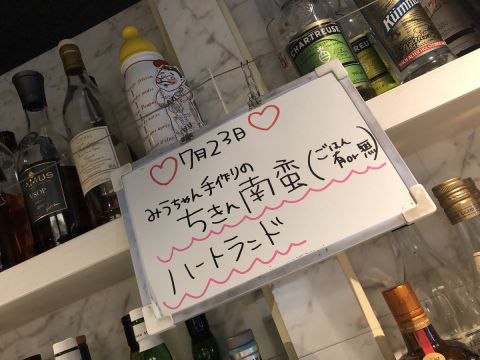 ♡ 7月23日 ♡
みうちゃん手作りの
ちきん南蛮 (ごはん
有or無)
ハートランド
CHARTREUSE
Kümmel
AMUS
VSOP